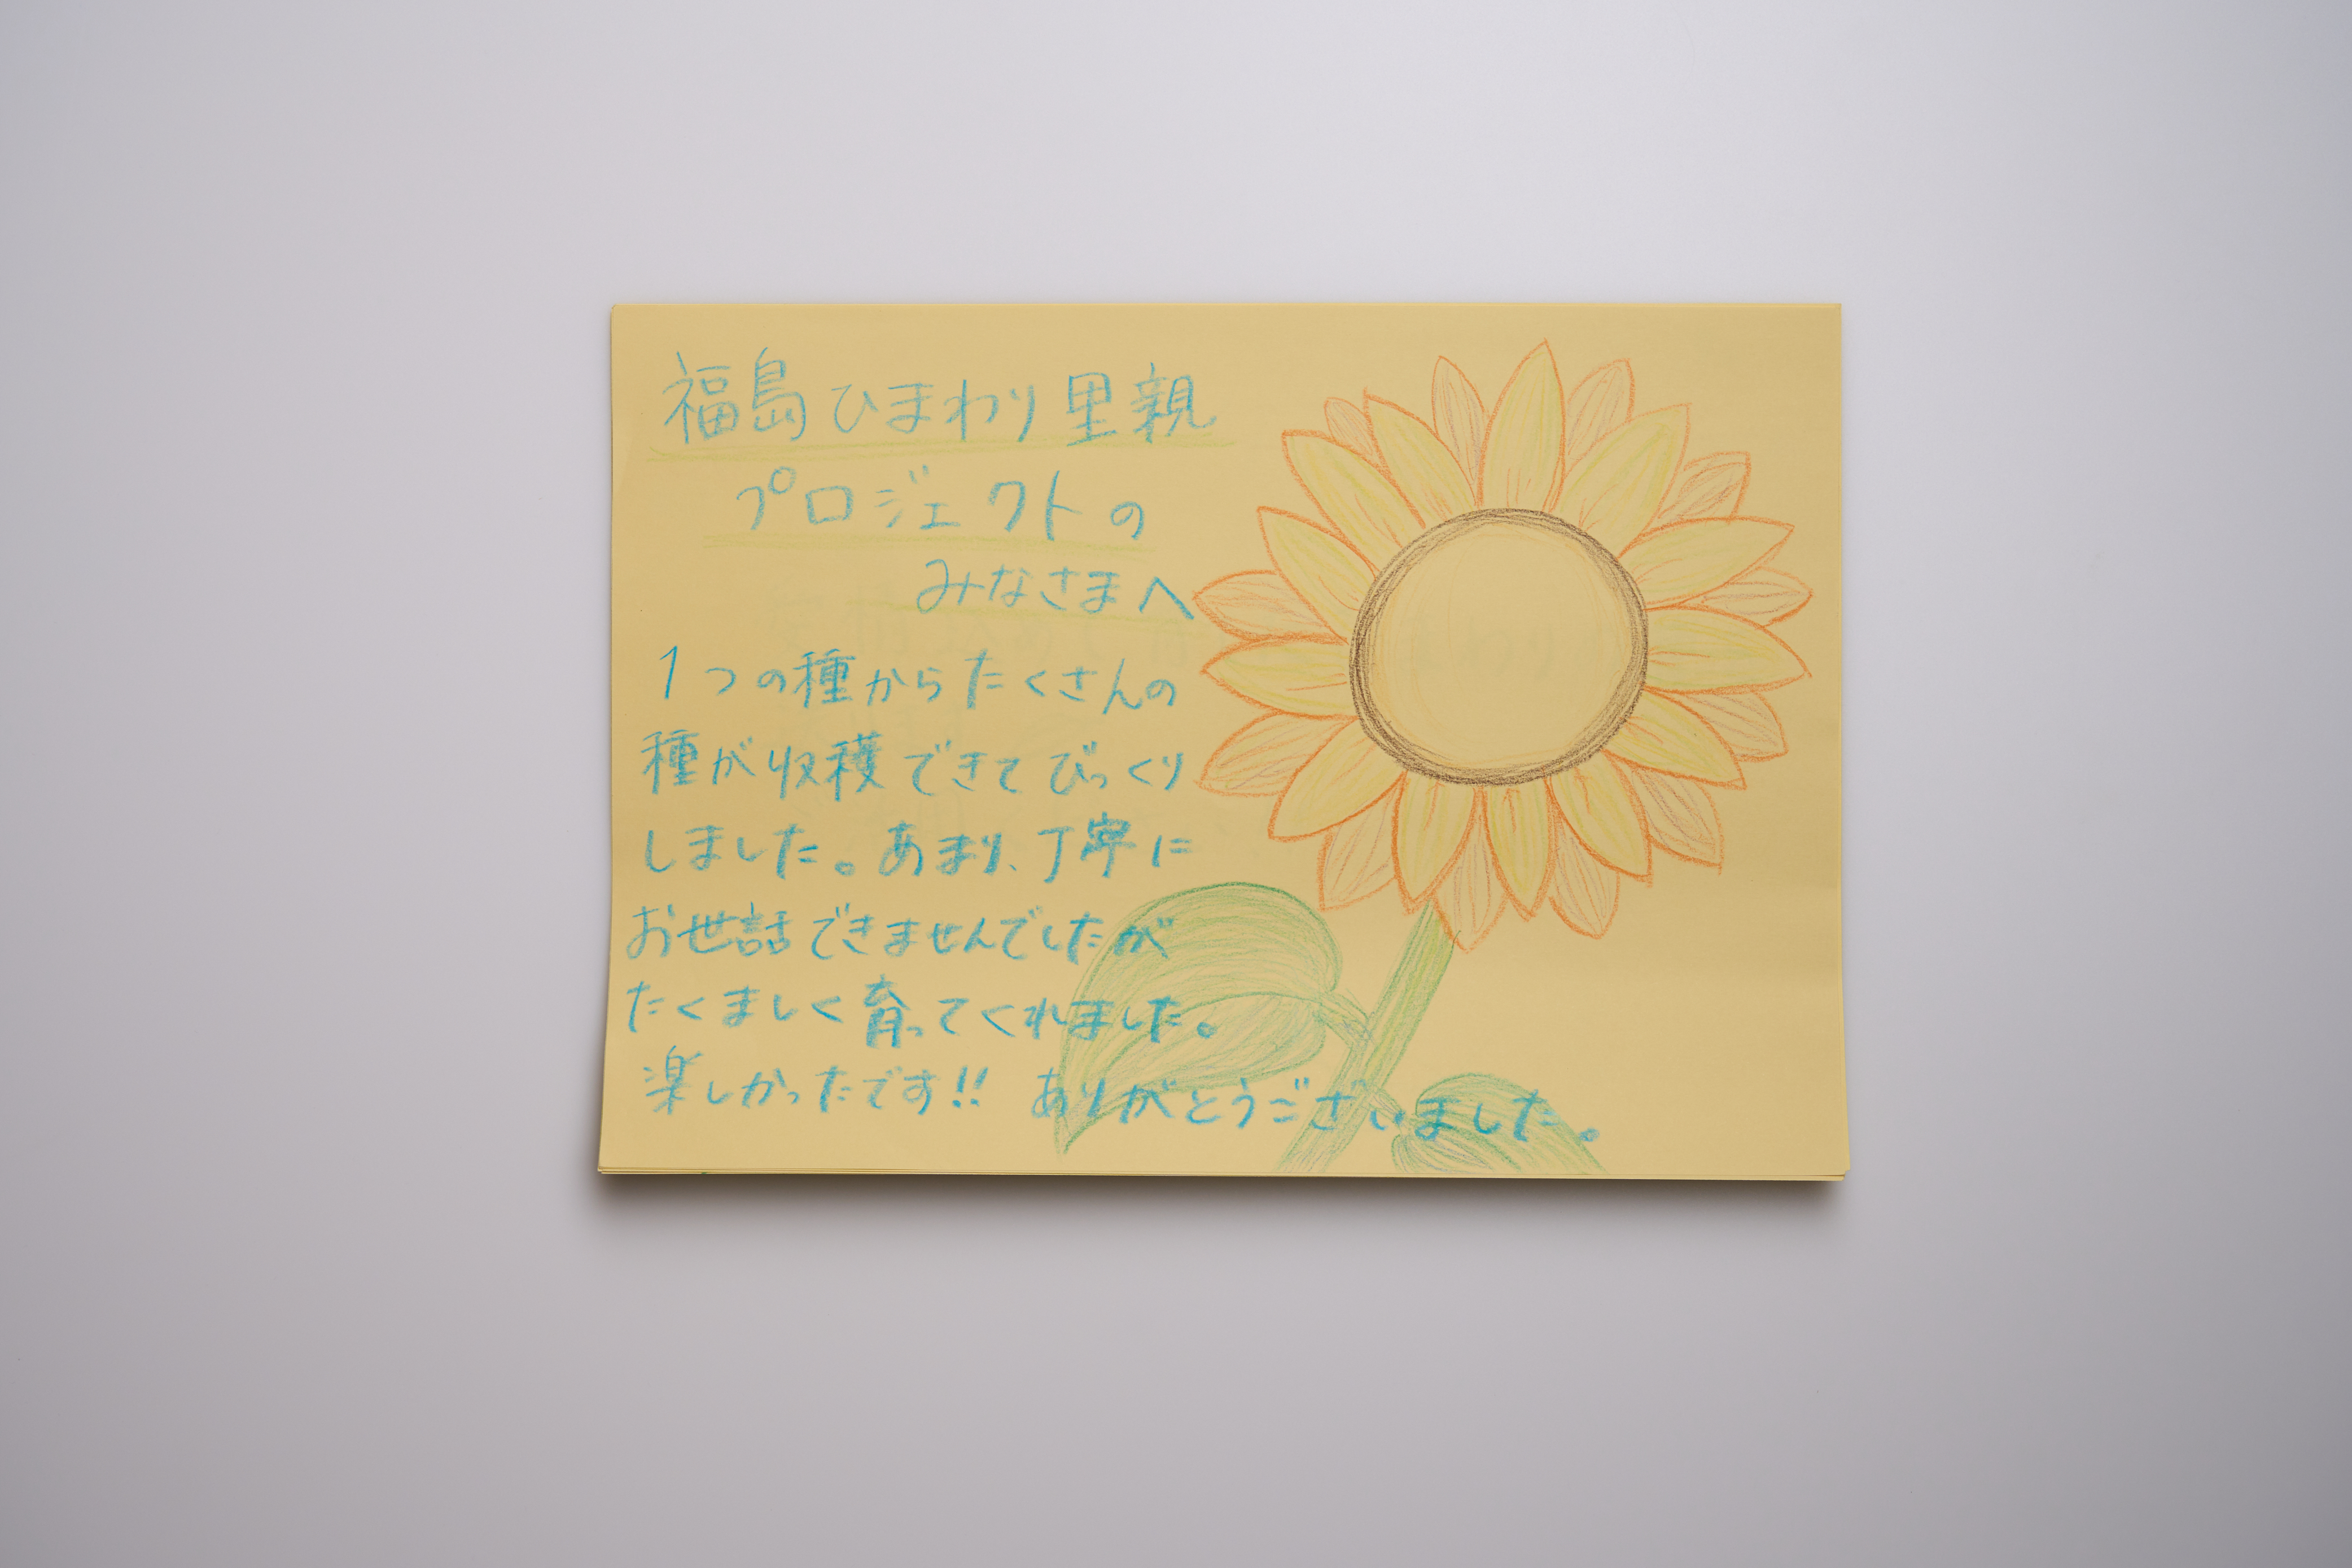 福島ひまわり里親
プロジェクトの
みなさまへ
1つの種からたくさんの
種が収穫できてびっくり
しました。あまり、丁寧に
お世話できませんでしたが
たくましく育ってくれました。
楽しかったです!! ありがとうございました。